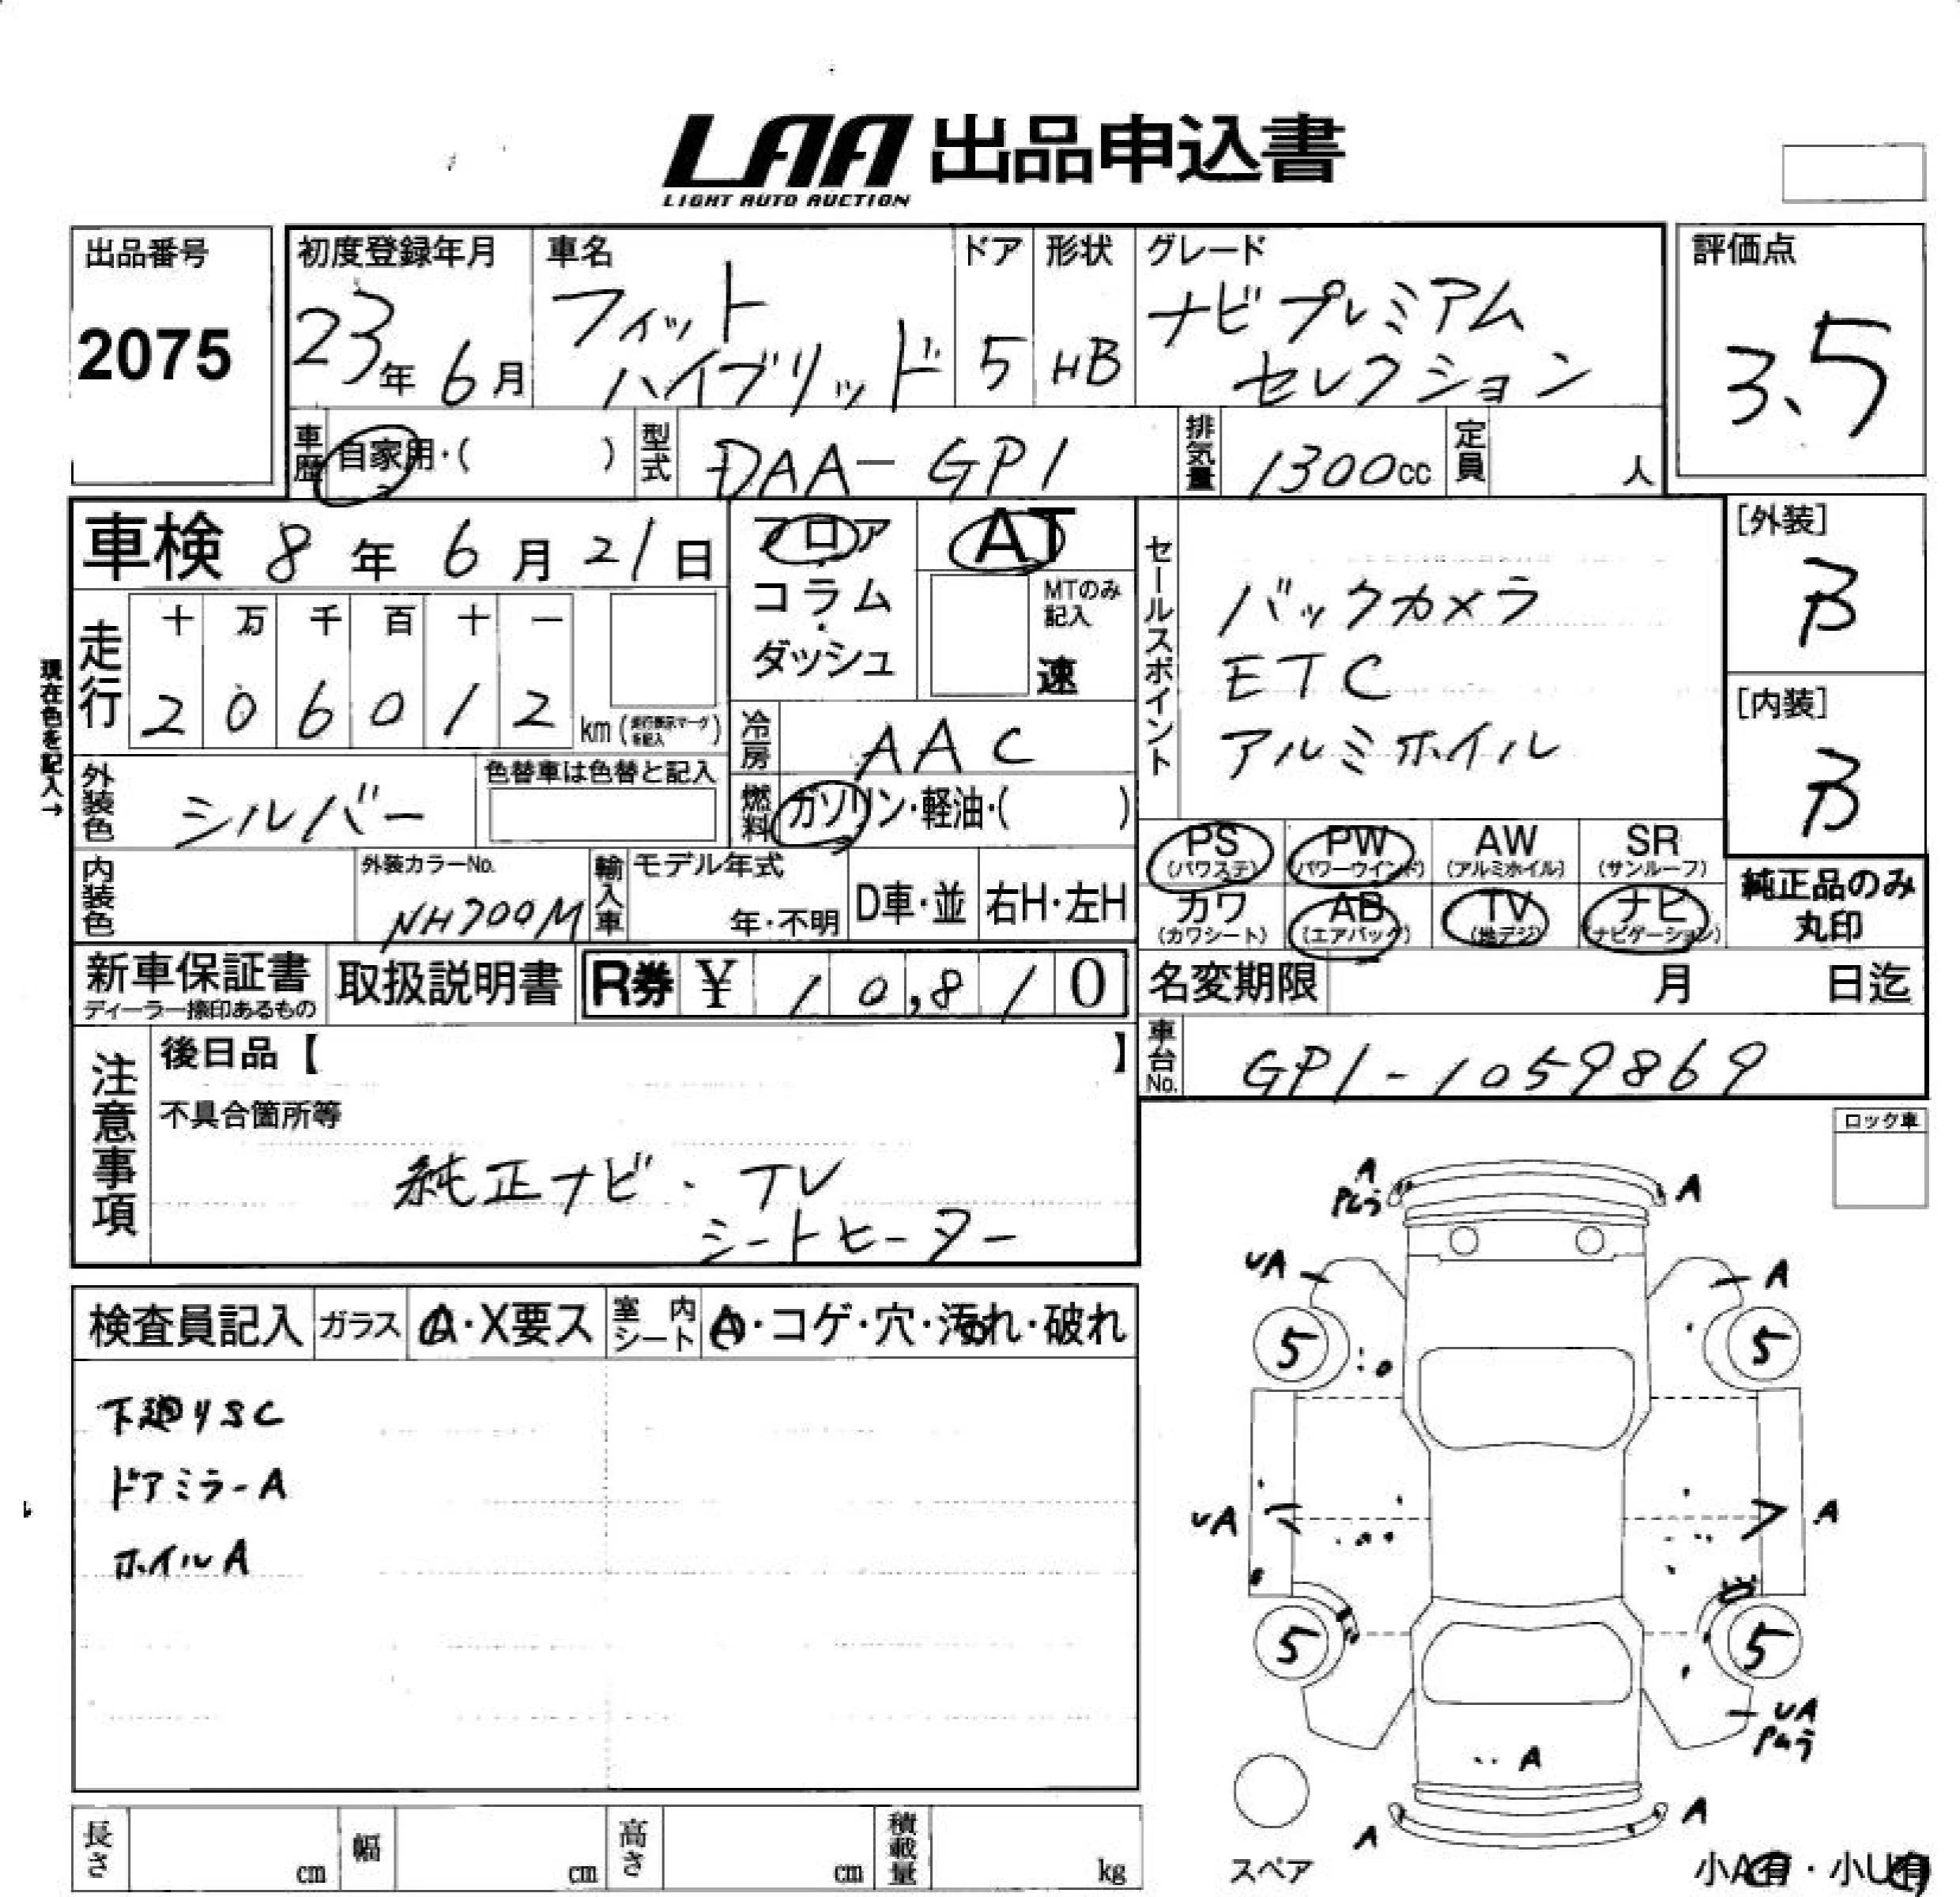 LAA 出品申込書
LIGHT AUTO AUCTION
出品番号
2075
初度登録年月
23年 6月
車名
フィット
ハイブリッド
ドア
5
形状
HB
グレード
ナビプレミアム
セレクション
評価点
3.5
車歴 自家用・( )
型式 DAA-GP1
排気量 1300cc
定員 人
車検 8年 6月 21日
フロア
コラム
・
ダッシュ
AT
MTのみ
記入
速
セールスポイント
バックカメラ
ETC
アルミホイル
[外装]
B
[内装]
B
現在色を記入→
走行
十 万 千 百 十 一
2 0 6 0 1 2 km
冷房 AAC
外装色 シルバー
色替車は色替と記入
燃料 ガソリン・軽油・( )
PS (パワステ) PW (パワーウインド) AW (アルミホイル) SR (サンルーフ)
カワ (カワシート) AB (エアバック) TV (地デジ) ナビ (ナビゲーション)
純正品のみ
丸印
内装色
外装カラーNo.
NH700M
輸入車
モデル年式
年・不明
D車・並
右H・左H
新車保証書
ディーラー捺印あるもの
取扱説明書
R券 ¥ 10,810
名変期限 月 日迄
車台No. GP1-1059869
注意事項
後日品【 】
不具合箇所等
純正ナビ・TV
シートヒーター
ロック車
検査員記入 ガラス A・X要ス 室内シート A・コゲ・穴・汚れ・破れ
下廻りSC
ドアミラーA
ホイルA
A
Pムラ
A
UA
A
5
5
UA
A
5
5
UA
Pムラ
A
A
A
スペア
小A有・小U有
長さ cm
幅 cm
高さ cm
積載量 kg